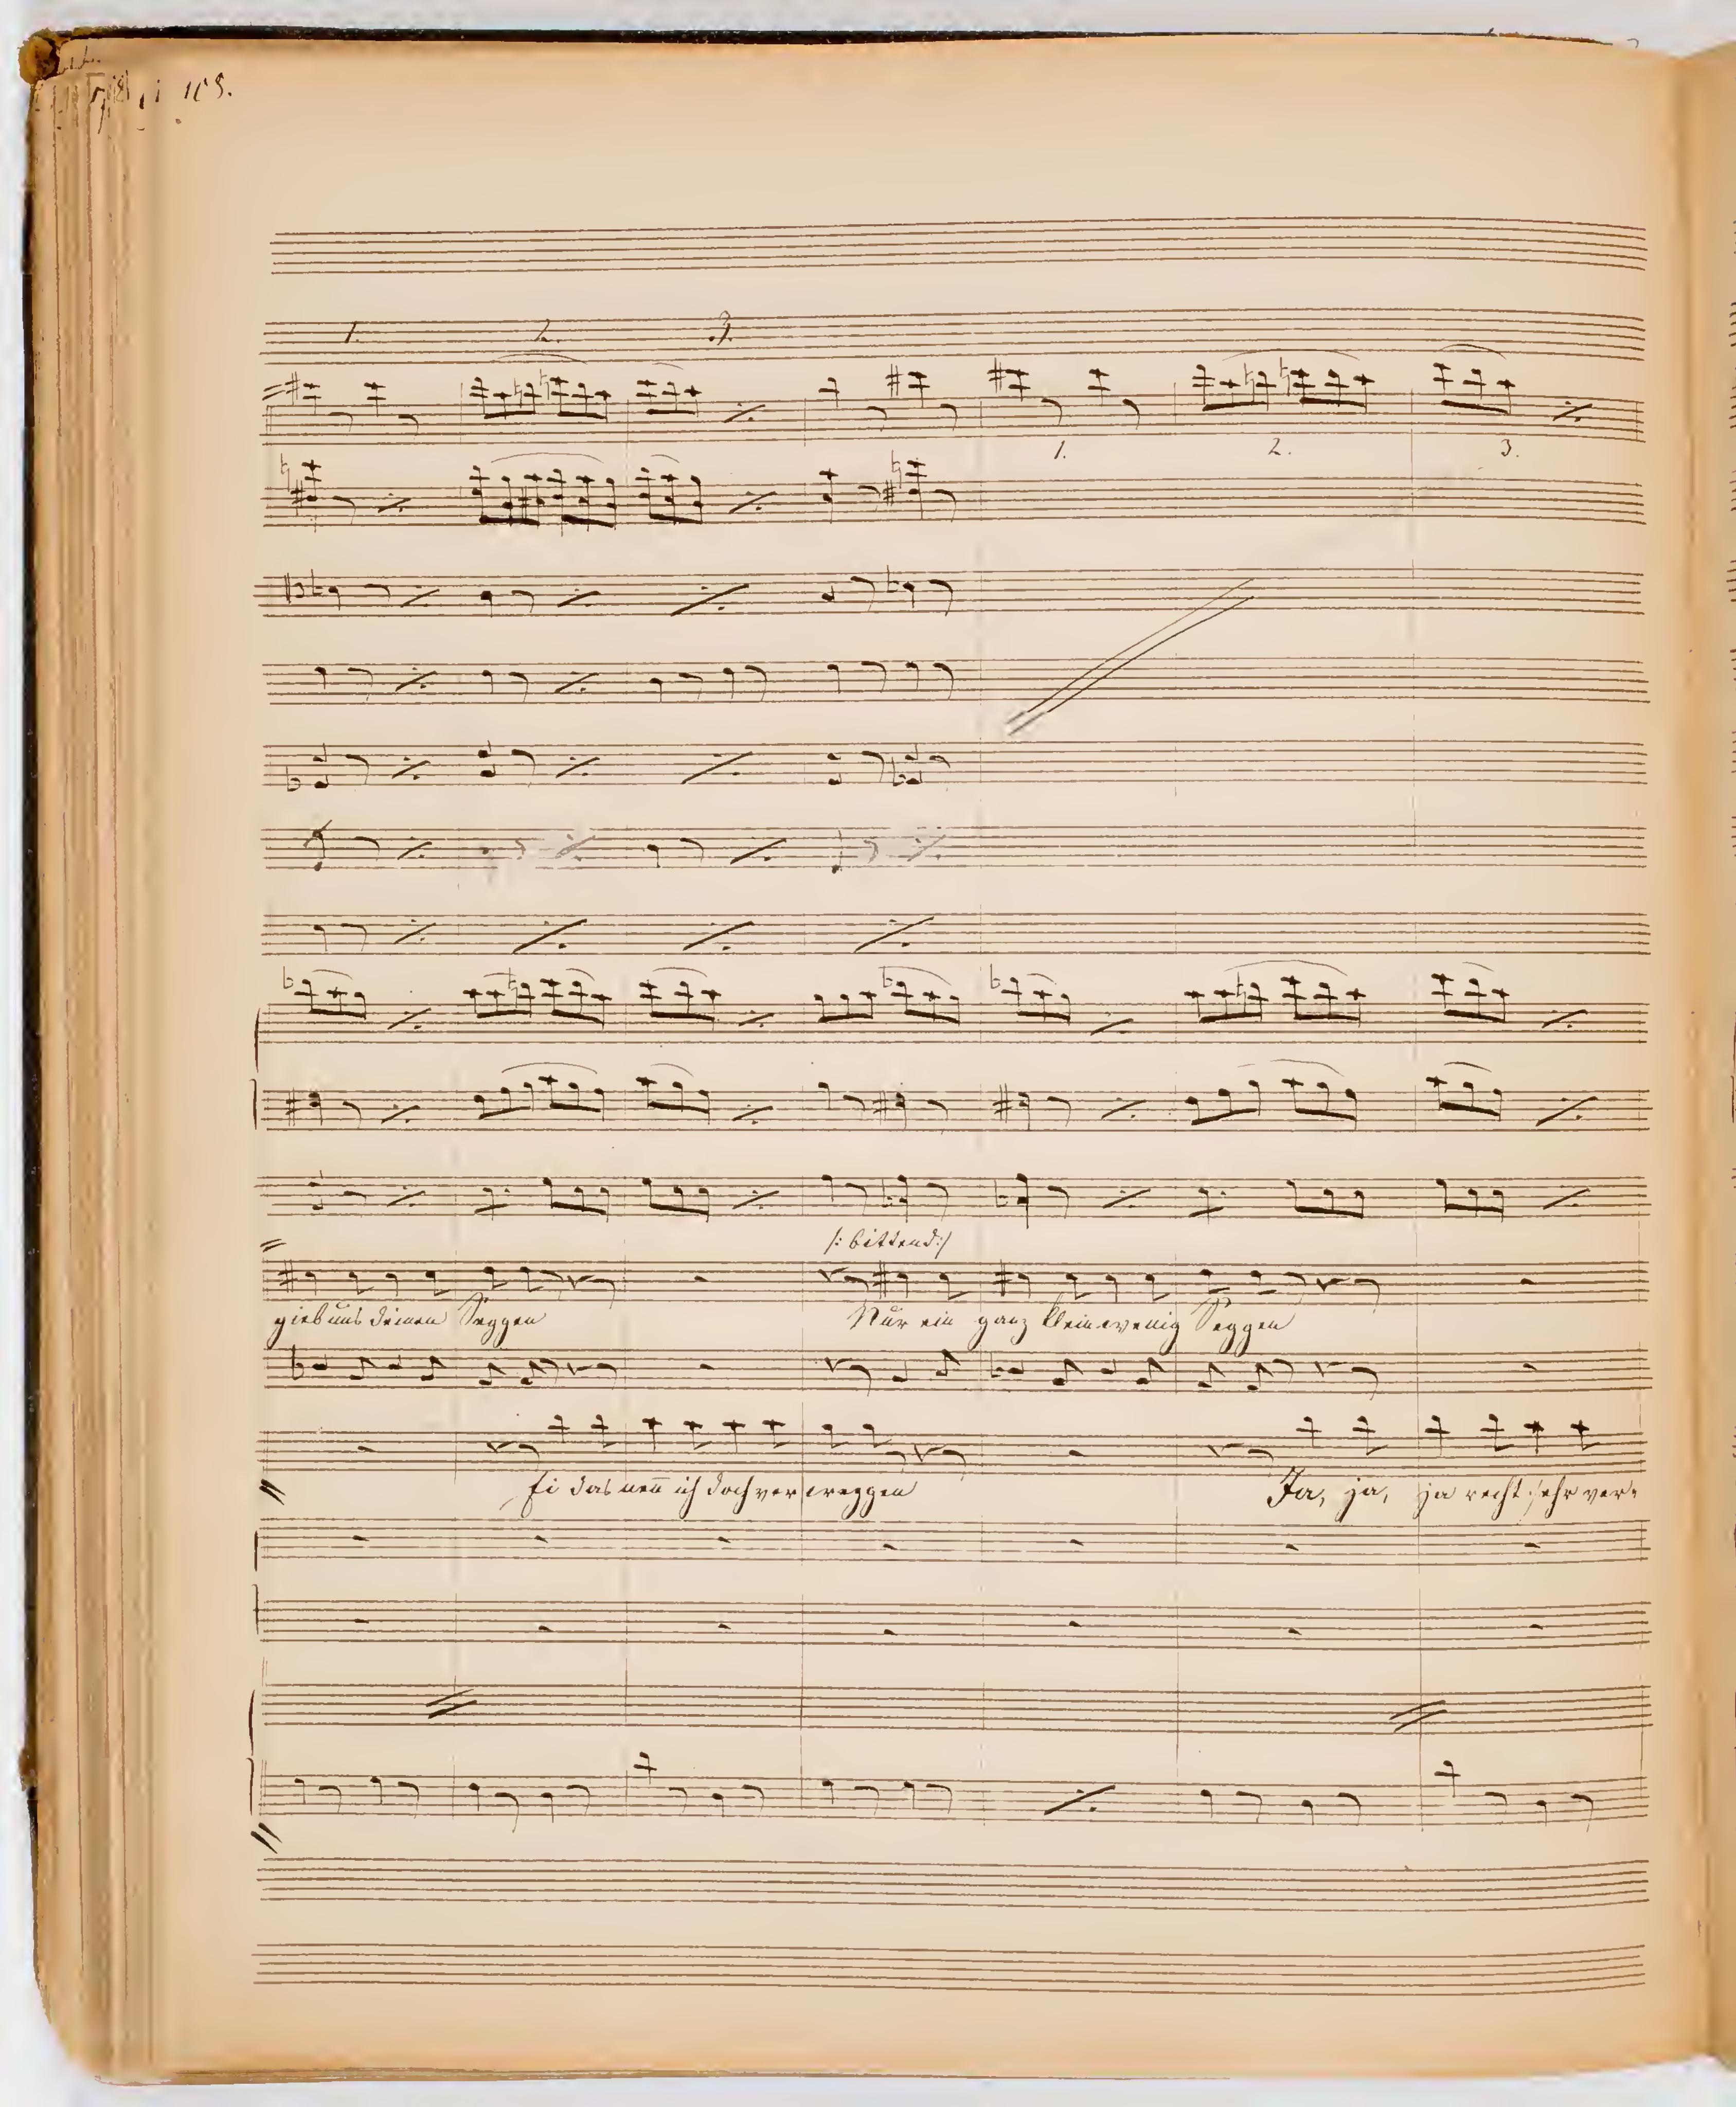 108.
1. 2. 3.
1. 2. 3.
/: bittend :/
gieb uns deinen Seggen Nur ein ganz klein wenig Seggen
Ei das nen̄ ich doch ver weggen Ja, ja, ja recht sehr ver-